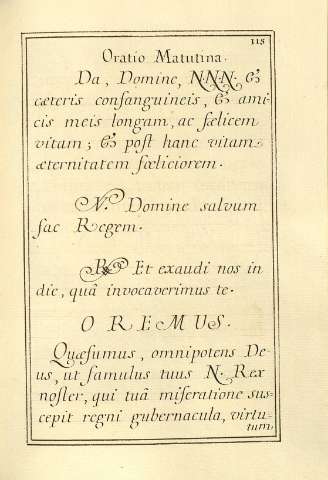 115
Oratio Matutina.
Da, Domine, N. N. N. &
cæteris consanguineis, & ami
cis meis longam, ac fælicem
vitam; & post hanc vitam
æternitatem fœliciorem.
V. Domine salvum
fac Regem.
R. Et exaudi nos in
die, quâ invocaverimus te.
OREMUS.
Quæsumus, omnipotens De-
us, ut famulus tuus N. Rex
noster, qui tuâ miseratione sus-
cepit regni gubernacula, virtu-
tum